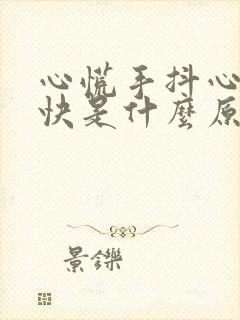 心慌手抖心
快是什麼原
景鑠